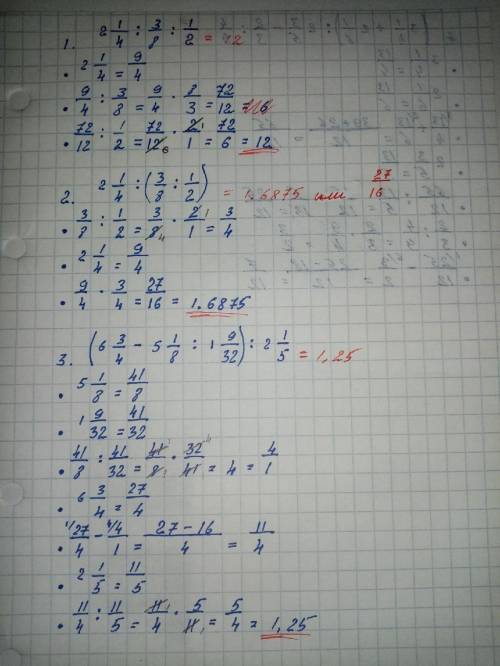 1. 2 1/4 : 3/8 : 1/2 = 12
• 2 1/4 = 9/4
• 9/4 : 3/8 = 9/4 · 8/3 = 72/12
• 72/12 : 1/2 = 72/12 6 · 2 1/1 = 72/6 = 12
2. 2 1/4 : (3/8 : 1/2) = 1.6875 или 27/16
• 3/8 : 1/2 = 3/8 4 · 2 1/1 = 3/4
• 2 1/4 = 9/4
• 9/4 · 3/4 = 27/16 = 1.6875
3. (6 3/4 - 5 1/8 : 1 9/32) : 2 1/5 = 1,25
• 5 1/8 = 41/8
• 1 9/32 = 41/32
• 41/8 : 41/32 = 41 1/8 1 · 32 4/41 1 = 4 = 4/1
• 6 3/4 = 27/4
• 1/ 27/4 - 4/ 4/1 = 27-16/4 = 11/4
• 2 1/5 = 11/5
• 11/4 : 11/5 = 11 1/4 · 5/11 1 = 5/4 = 1,25